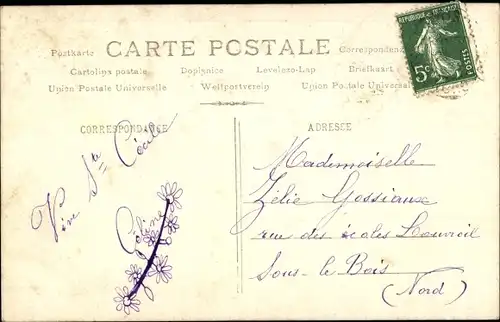 CARTE POSTALE
Postkarte
Correspondenz
Cartolina postale
Dopisnice
Levelezo-Lap
Briefkaart
Union Postale Universelle
Weltpostverein
Union Postale Universelle
CORRESPONDANCE
ADRESSE
REPUBLIQUE FRANÇAISE
5c
POSTES
Vive Ste Cécile
Céline
Mademoiselle
Zélie Gossiaux
rue des écoles Louvroil
Sous-le Bois
(Nord)